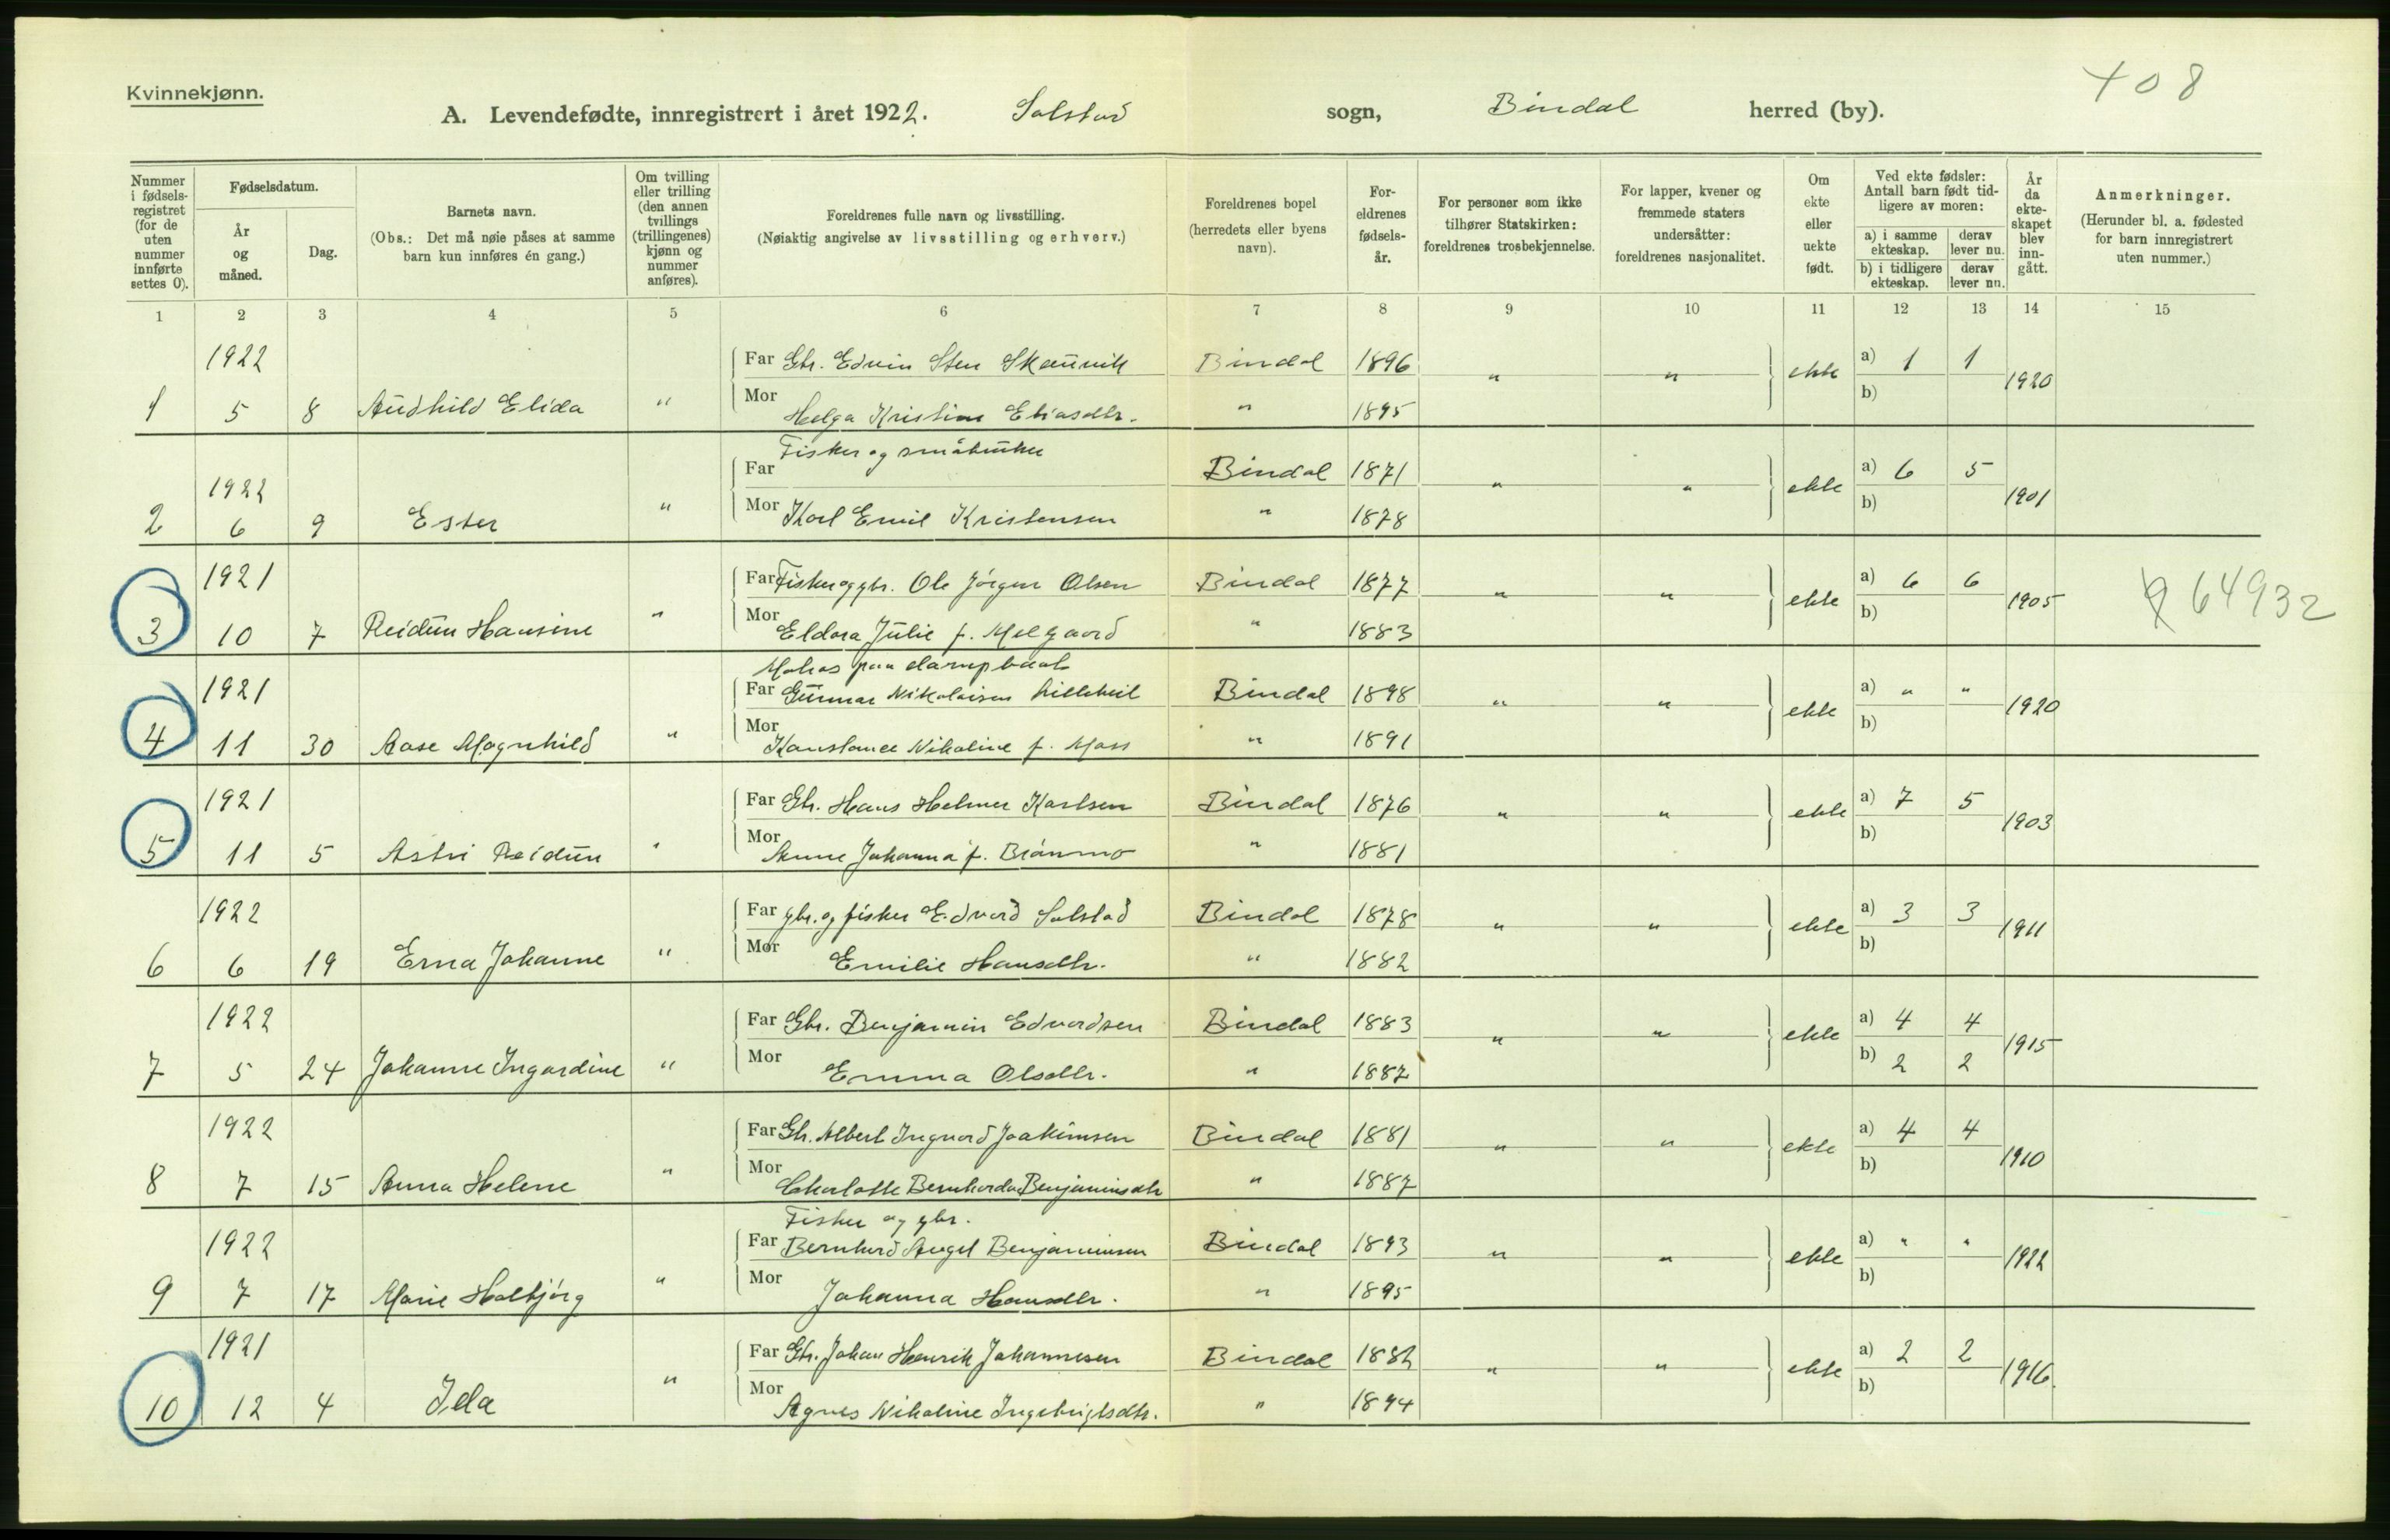 Kvinnekjønn.
408
A. Levendefødte, innregistrert i året 1922. Solstad sogn, Bindal herred (by).
Nummer i fødselsregistret (for de uten nummer innførte settes 0).
Fødselsdatum.
År og måned.
Dag.
Barnets navn.
(Obs.: Det må nøie påses at samme barn kun innføres én gang.)
Om tvilling eller trilling (den annen tvillings (trillingenes) kjønn og nummer anføres).
Foreldrenes fulle navn og livsstilling.
(Nøiaktig angivelse av livsstilling og erhverv.)
Foreldrenes bopel (herredets eller byens navn).
Foreldrenes fødselsår.
For personer som ikke tilhører Statskirken: foreldrenes trosbekjennelse.
For lapper, kvener og fremmede staters undersåtter: foreldrenes nasjonalitet.
Om ekte eller uekte født.
Ved ekte fødsler: Antall barn født tidligere av moren:
a) i samme ekteskap. derav lever nu.
b) i tidligere ekteskap. derav lever nu.
År da ekteskapet blev inngått.
Anmerkninger.
(Herunder bl. a. fødested for barn innregistrert uten nummer.)
1 2 3 4 5 6 7 8 9 10 11 12 13 14 15
1922 Far Gbr. Edvin Sten Skaunvik Bindal 1896 " " ekte a) 1 1 1920
1 5 8 Audhild Elida " Mor Helga Kristine Eliasdtr. " 1895 b)
Fisker og småbruker
1922 Far Bindal 1871 " " ekte a) 6 5 1901
2 6 9 Ester " Mor Karl Emil Kristensen " 1878 b)
1921 Far Fisker og gbr. Ole Jörgen Olsen Bindal 1877 " " ekte a) 6 6 1905 64932
3 10 7 Reidun Hansine " Mor Eldora Julie f. Melgaard " 1883 b)
Matros paa dampbaat
1921 Far Gunnar Nikolaisen Bindal 1898 " " ekte a) " " 1920
4 11 30 Aase Magnhild " Mor Konstance Nikoline f. Moss " 1891 b)
1921 Far Gbr. Hans Helmer Karlsen Bindal 1876 " " ekte a) 7 5 1903
5 11 5 Astri Reidun " Mor Anne Johanna f. Brönmo " 1881 b)
1922 Far gbr. og fisker Edvard Solstad Bindal 1878 " " ekte a) 3 3 1911
6 6 19 Erna Johanne " Mor Emilie Hansdtr. " 1882 b)
1922 Far Gbr. Benjamin Edvardsen Bindal 1883 " " ekte a) 4 4 1915
7 5 24 Johanne Ingardine " Mor Emma Olsdtr. " 1887 b) 2 2
1922 Far Gbr. Albert Ingvard Joakimsen Bindal 1881 " " ekte a) 4 4 1910
8 7 15 Anna Helene " Mor Charlotte Bernharda Benjaminsdtr " 1887 b)
Fisker og gbr.
1922 Far Bernhard Angel Benjaminsen Bindal 1893 " " ekte a) " " 1922
9 7 17 Marie Halbjörg " Mor Johanna Hansdtr. " 1895 b)
1921 Far Gbr. Johan Henrik Johannesen Bindal 1882 " " ekte a) 2 2 1916.
10 12 4 Ida " Mor Agnes Nikoline Ingebrigtsdtr. " 1894 b)